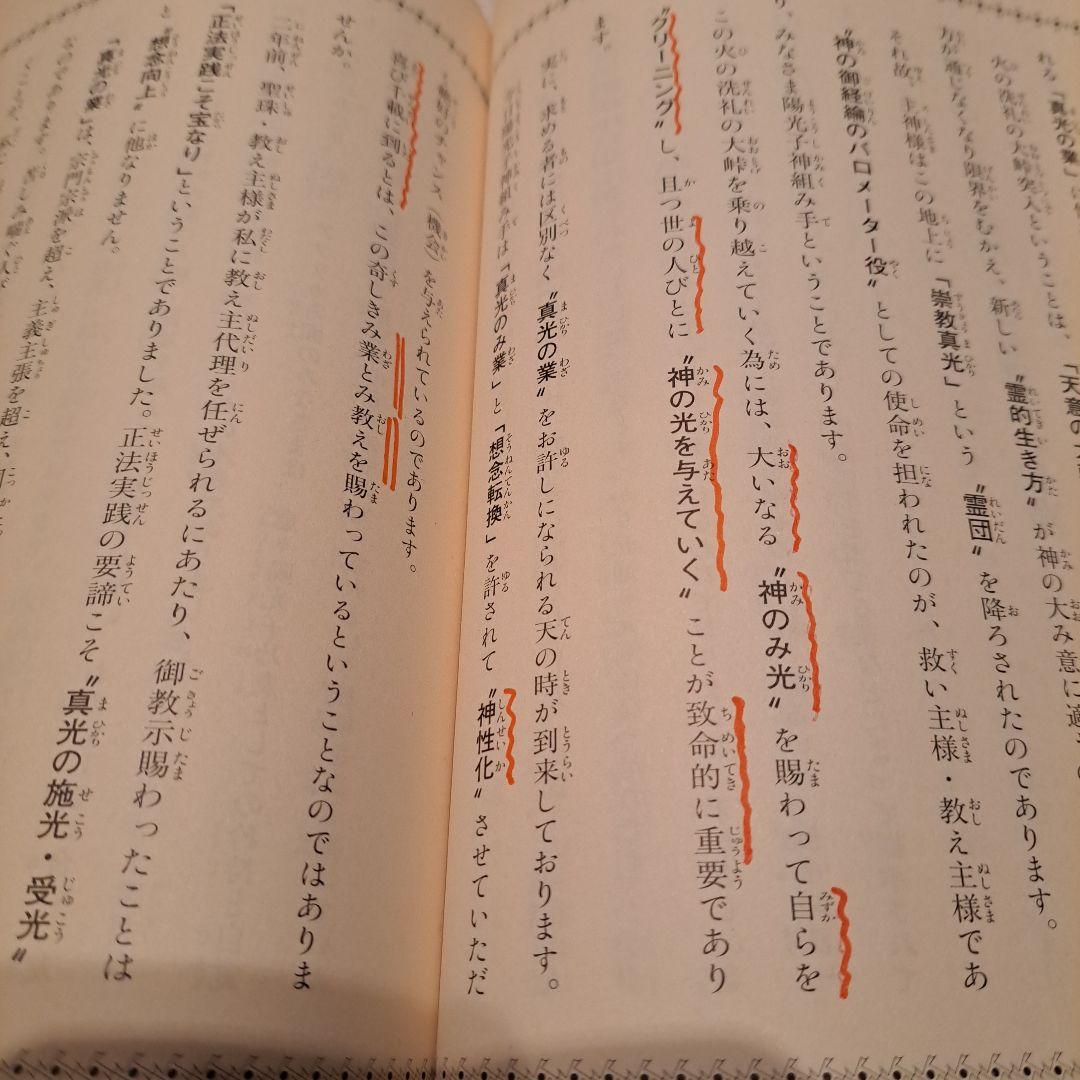 れる「真光の業」
火の洗礼の大峠突入ということは、「天意の
方が通じなくなり限界をむかえ、新しい〝霊的生き方〟が神の大み意に適
それ故、主神様はこの地上に「崇教真光」という〝霊団〟を降ろされたのであります。
〝神の御経綸のバロメーター役〟としての使命を担われたのが、救い主様・教え主様であ
り、みなさま陽光子神組み手ということであります。
この火の洗礼の大峠を乗り越えていく為には、大いなる〝神のみ光〟を賜わって自らを
〝クリーニング〟し、且つ世の人びとに〝神の光を与えていく〟ことが致命的に重要であり
ます。
実に、求める者には区別なく〝真光の業〟をお許しになられる天の時が到来しております。
神組み手は「真光のみ業」と「想念転換」を許されて〝神性化〟させていただ
のチャンス(機会)を与えられているのであります。
喜び千載に到るとは、この奇しきみ業とみ教えを賜わっているということなのではありま
せんか。
二年前、聖珠・教え主様が私に教え主代理を任ぜられるにあたり、御教示賜わったことは
「正法実践こそ宝なり」ということでありました。正法実践の要諦こそ〝真光の施光・受光〟
と〝想念向上〟に他なりません。
〝真光の業〟は、宗門宗派を超え、主義主張を超え、